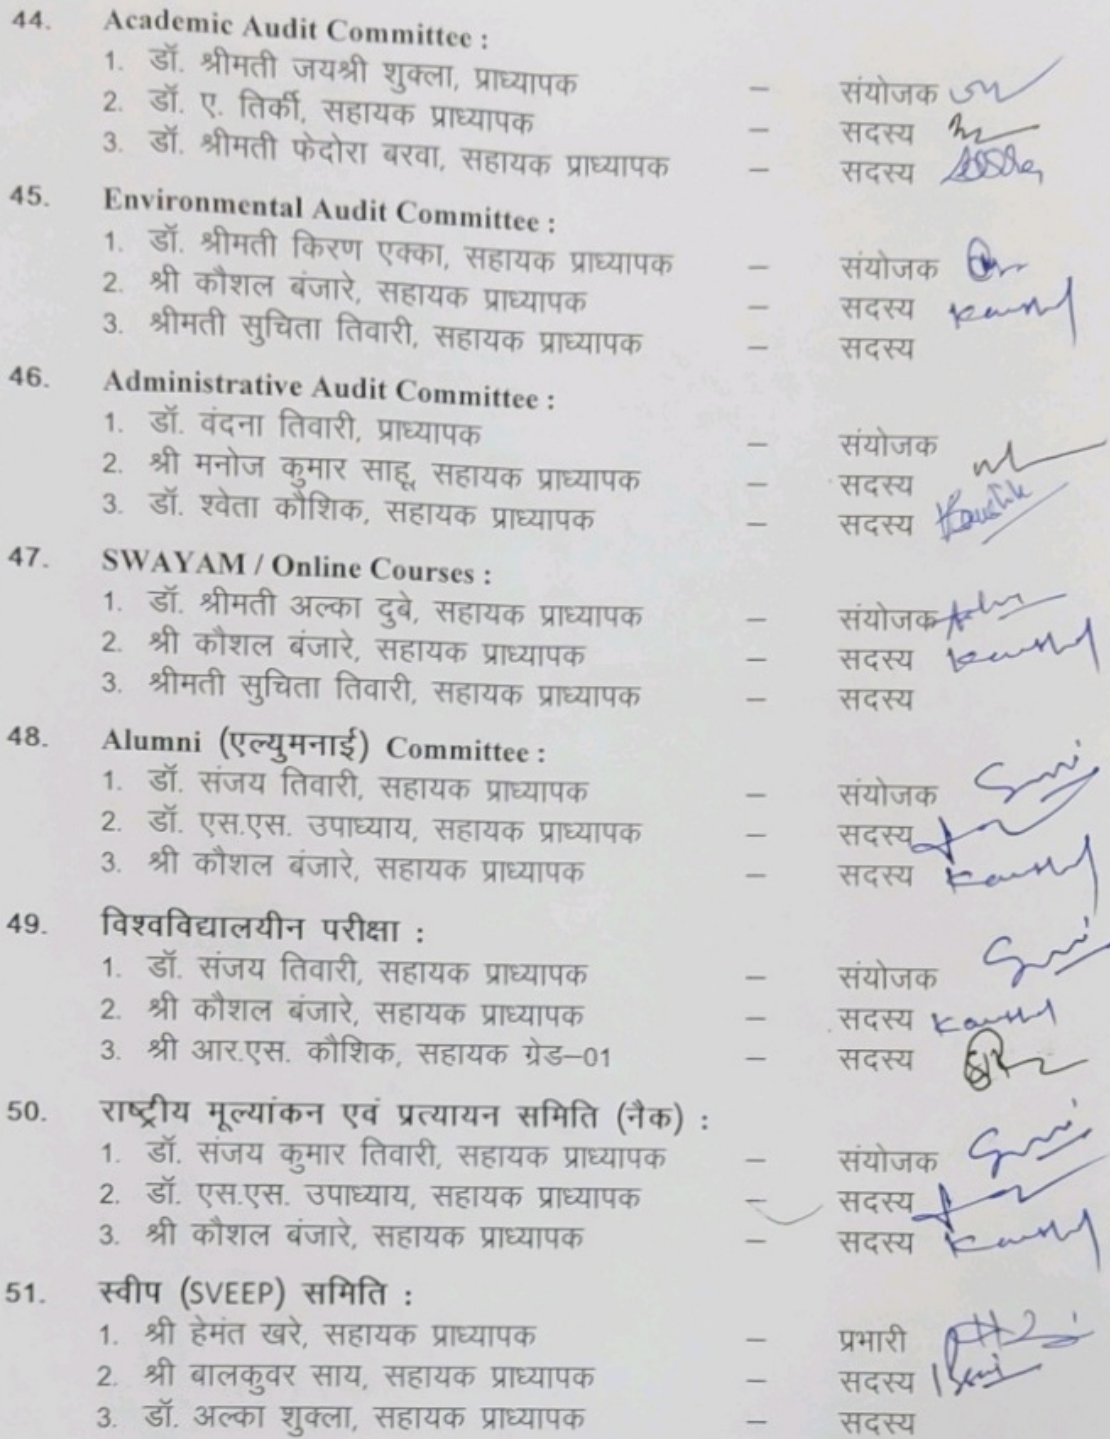 44. Academic Audit Committee :
1. डॉ. श्रीमती जयश्री शुक्ला, प्राध्यापक – संयोजक
2. डॉ. ए. तिर्की, सहायक प्राध्यापक – सदस्य
3. डॉ. श्रीमती फेदोरा बरवा, सहायक प्राध्यापक – सदस्य
45. Environmental Audit Committee :
1. डॉ. श्रीमती किरण एक्का, सहायक प्राध्यापक – संयोजक
2. श्री कौशल बंजारे, सहायक प्राध्यापक – सदस्य Kaushal
3. श्रीमती सुचिता तिवारी, सहायक प्राध्यापक – सदस्य
46. Administrative Audit Committee :
1. डॉ. वंदना तिवारी, प्राध्यापक – संयोजक
2. श्री मनोज कुमार साहू, सहायक प्राध्यापक – सदस्य
3. डॉ. श्वेता कौशिक, सहायक प्राध्यापक – सदस्य Kaushik
47. SWAYAM / Online Courses :
1. डॉ. श्रीमती अल्का दुबे, सहायक प्राध्यापक – संयोजक
2. श्री कौशल बंजारे, सहायक प्राध्यापक – सदस्य Kaushal
3. श्रीमती सुचिता तिवारी, सहायक प्राध्यापक – सदस्य
48. Alumni (एल्युमनाई) Committee :
1. डॉ. संजय तिवारी, सहायक प्राध्यापक – संयोजक
2. डॉ. एस.एस. उपाध्याय, सहायक प्राध्यापक – सदस्य
3. श्री कौशल बंजारे, सहायक प्राध्यापक – सदस्य Kaushal
49. विश्वविद्यालयीन परीक्षा :
1. डॉ. संजय तिवारी, सहायक प्राध्यापक – संयोजक
2. श्री कौशल बंजारे, सहायक प्राध्यापक – सदस्य Kaushal
3. श्री आर.एस. कौशिक, सहायक ग्रेड–01 – सदस्य
50. राष्ट्रीय मूल्यांकन एवं प्रत्यायन समिति (नैक) :
1. डॉ. संजय कुमार तिवारी, सहायक प्राध्यापक – संयोजक
2. डॉ. एस.एस. उपाध्याय, सहायक प्राध्यापक – सदस्य
3. श्री कौशल बंजारे, सहायक प्राध्यापक – सदस्य Kaushal
51. स्वीप (SVEEP) समिति :
1. श्री हेमंत खरे, सहायक प्राध्यापक – प्रभारी
2. श्री बालकुवर साय, सहायक प्राध्यापक – सदस्य
3. डॉ. अल्का शुक्ला, सहायक प्राध्यापक – सदस्य